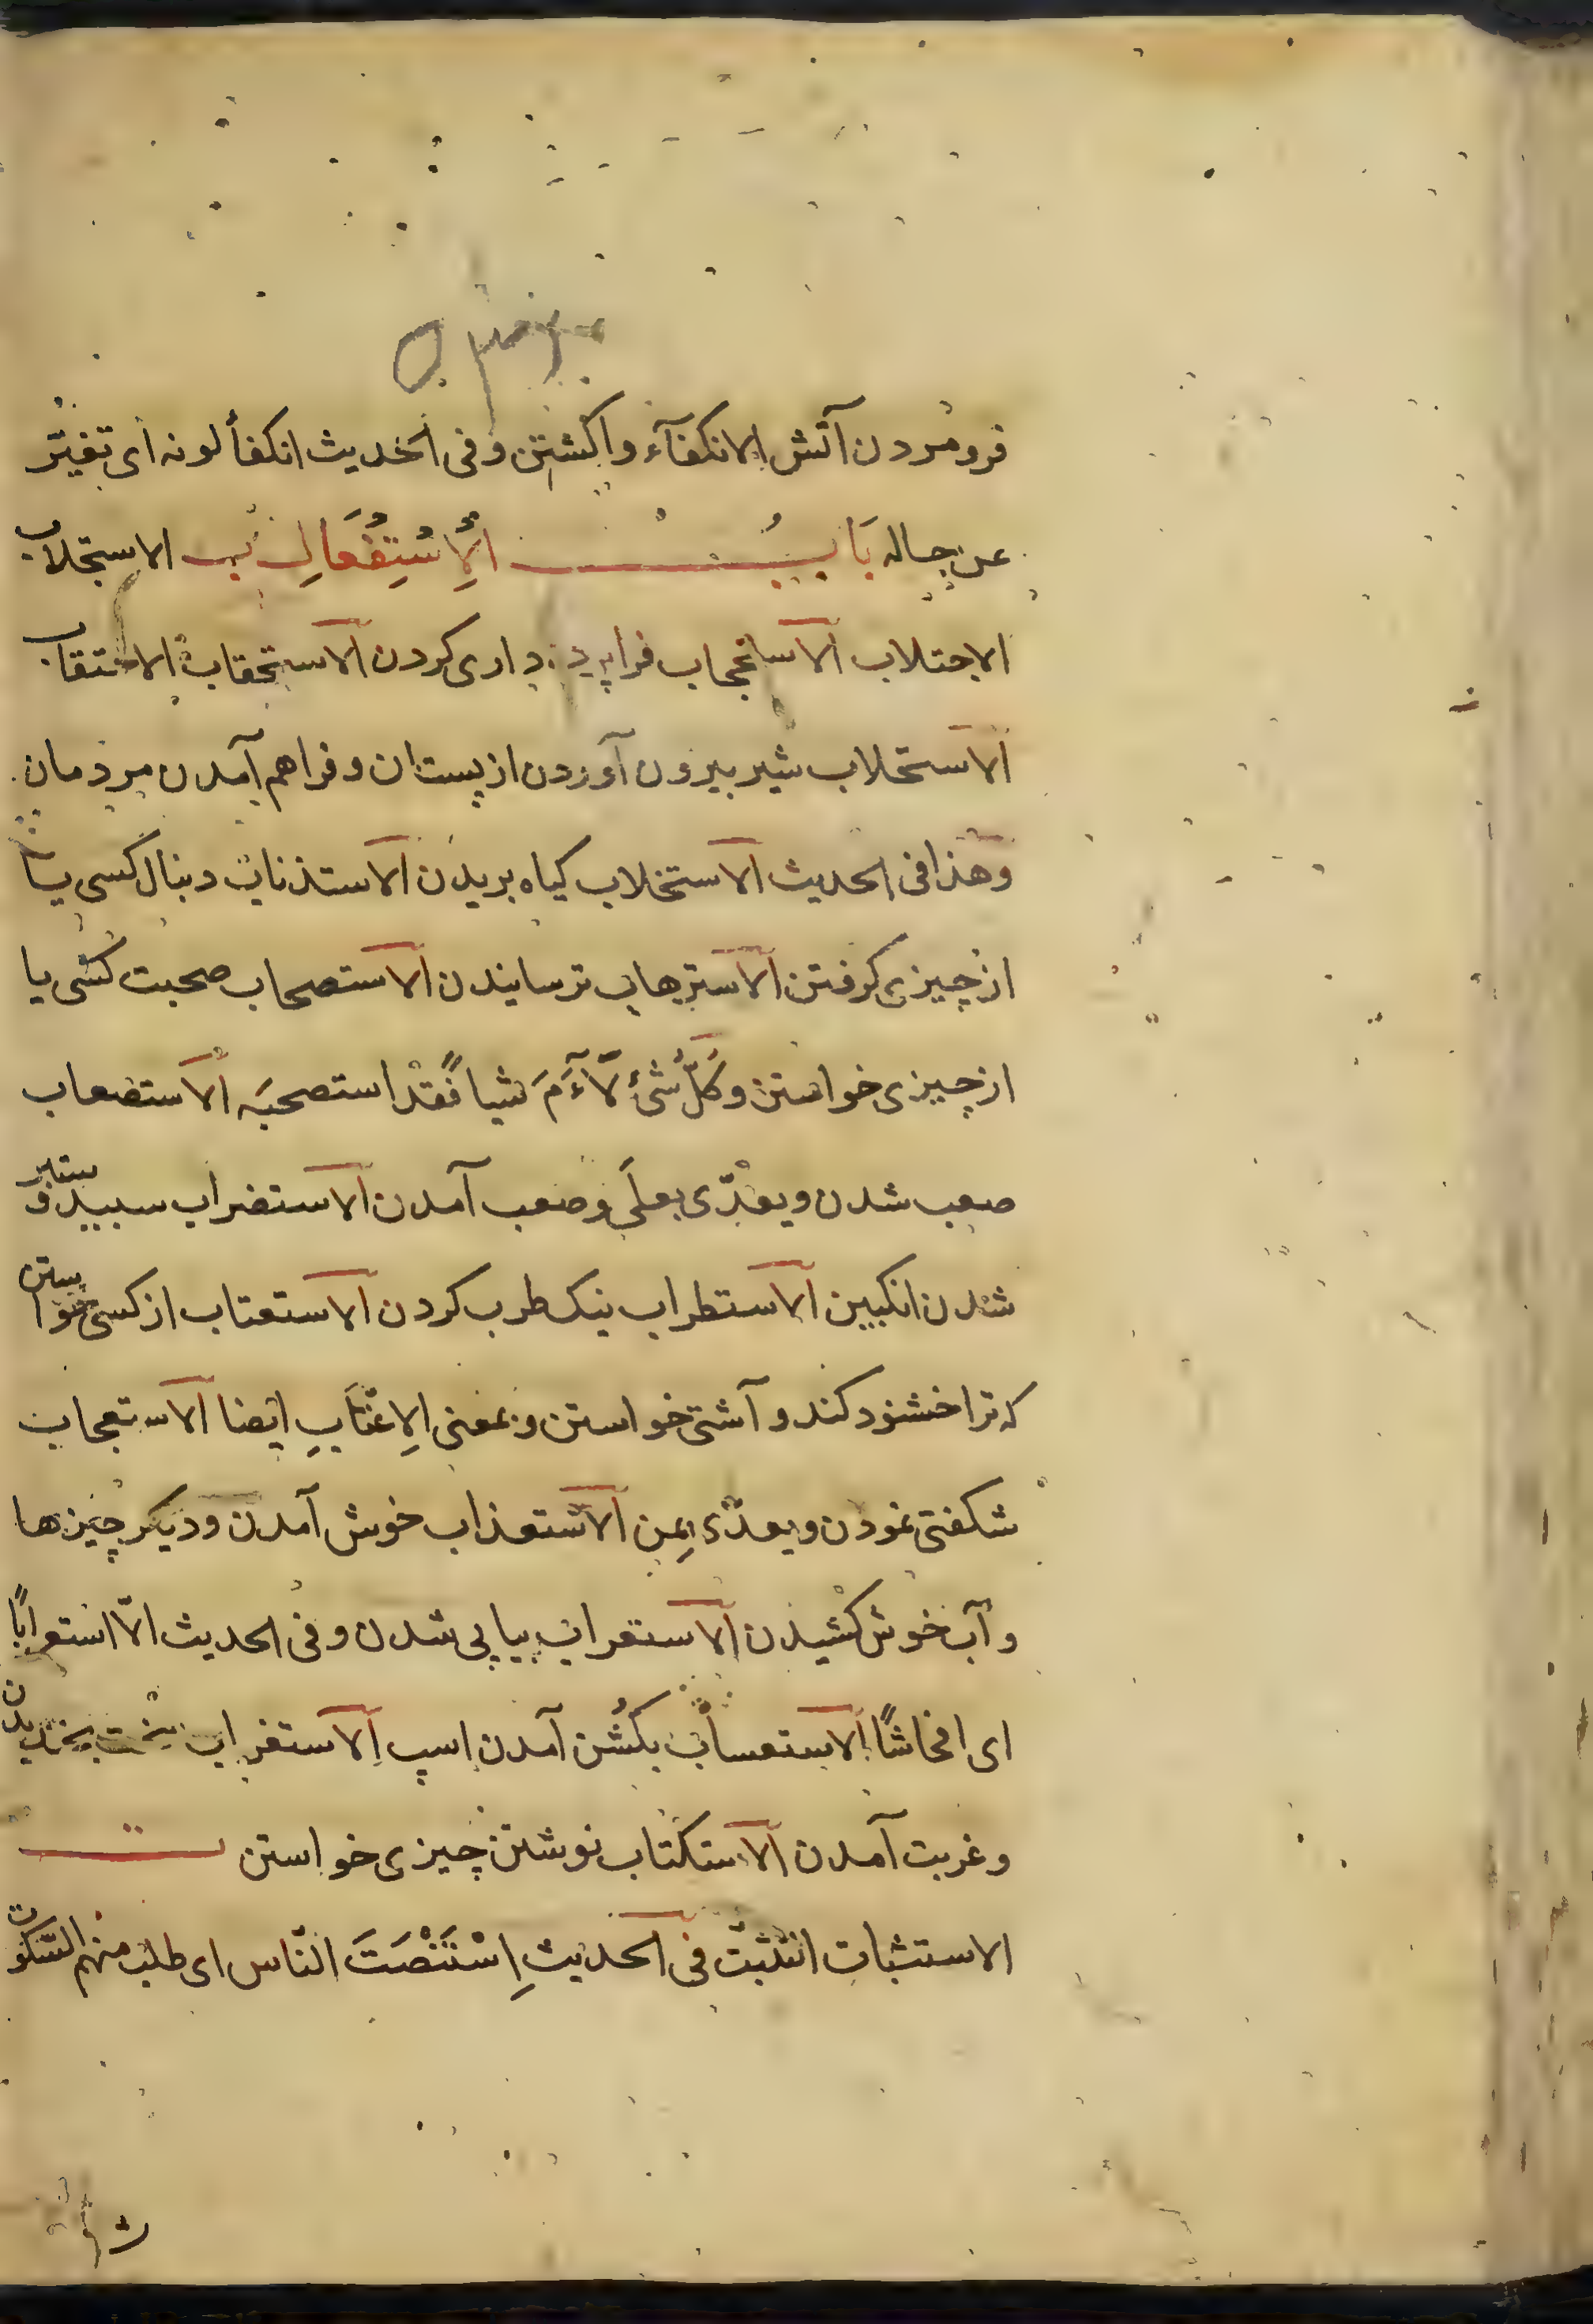 فرو مردن آتش الانکفآء واکشتن وفی الحدیث انکفأ لونه ای تغیّر
عن حاله بَابُ الْاِسْتِفْعَالِ ب الاستجلاب
الاجتلاب الاستحجاب فرا پرده داری کردن الاستحقاب الاحتقاب
الاستحلاب شیر بیرون آوردن از پستان وفراهم آمدن مردمان
وهذا فی الحدیث الاستخلاب کیاه بریدن الاستذناب دنبال کسی یا
از چیزی کرفتن الاسترهاب ترسانیدن الاستصحاب صحبت کسی یا
از چیزی خواستن وکلّ شئ لآءَمَ شیاً فقد استصحبه الاستصعاب
صعب شدن ویعدّی بعلی وصعب آمدن الاستضراب سبید وستبر
شدن انکبین الاستطراب نیک طرب کردن الاستعتاب از کسی خواستن
که ترا خشنود کند وآشتی خواستن وبمعنی الاِعْتَابِ ایضا الاستعجاب
شکفتی نمودن ویعدّی بِمِن الاستعذاب خوش آمدن ودیکر چیزها
وآب خوش کشیدن الاستعراب بیاپی شدن وفی الحدیث الاّ استعرابًا
ای افحاشًا الاستعساب بکُشن آمدن اسپ الاستغراب سخت خندیدن
وغربت آمدن الاستکتاب نوشتن چیزی خواستن ت
الاستثبات التثبّت فی الحدیثِ اِسْتَنْصَتَ النّاس ای طلب منهم السّکوت
ث